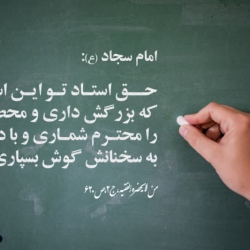 امام سجاد (ع):
حق استاد تو این اس
که بزرگش داری و محض
را محترم شماری و با د
به سخنانش گوش بسپاری
من لایحضره الفقیه، ج۲، ص۶۲۰